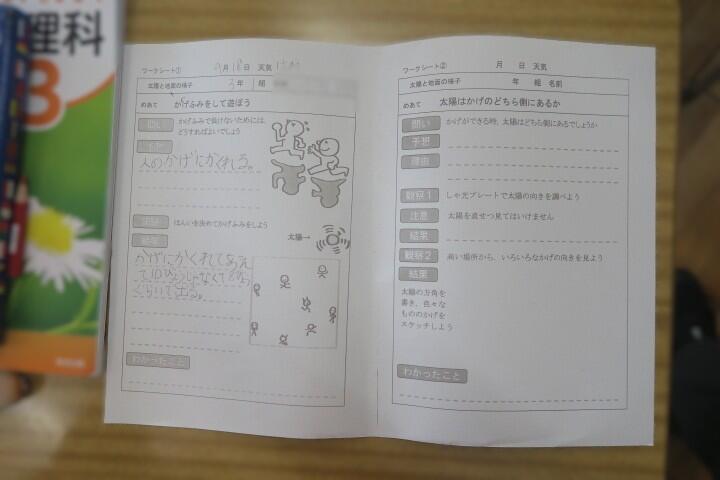 理科
3
ワークシート①
9月18日 天気 はれ
太陽と地面の様子 3年 組
めあて かげふみをして遊ぼう
問い かげふみで負けないためには、
どうすればよいでしょう
予想
人のかげにかくれる。
実験 はんいを決めてかげふみをしよう
太陽→
結果
かげにかくれて
て10びょうじゃなくて
くらいで出る。
わかったこと
ワークシート②
月 日 天気
太陽と地面の様子 年 組 名前
めあて 太陽はかげのどちら側にあるか
問い かげができる時、太陽はどちら側にあるでしょうか
予想
理由
観察1 しゃ光プレートで太陽の向きを調べよう
注意 太陽を直せつ見てはいけません
結果
観察2 高い場所から、いろいろなかげの向きを見よう
結果
太陽の方角を
書き、色々な
もののかげを
スケッチしよう
わかったこと